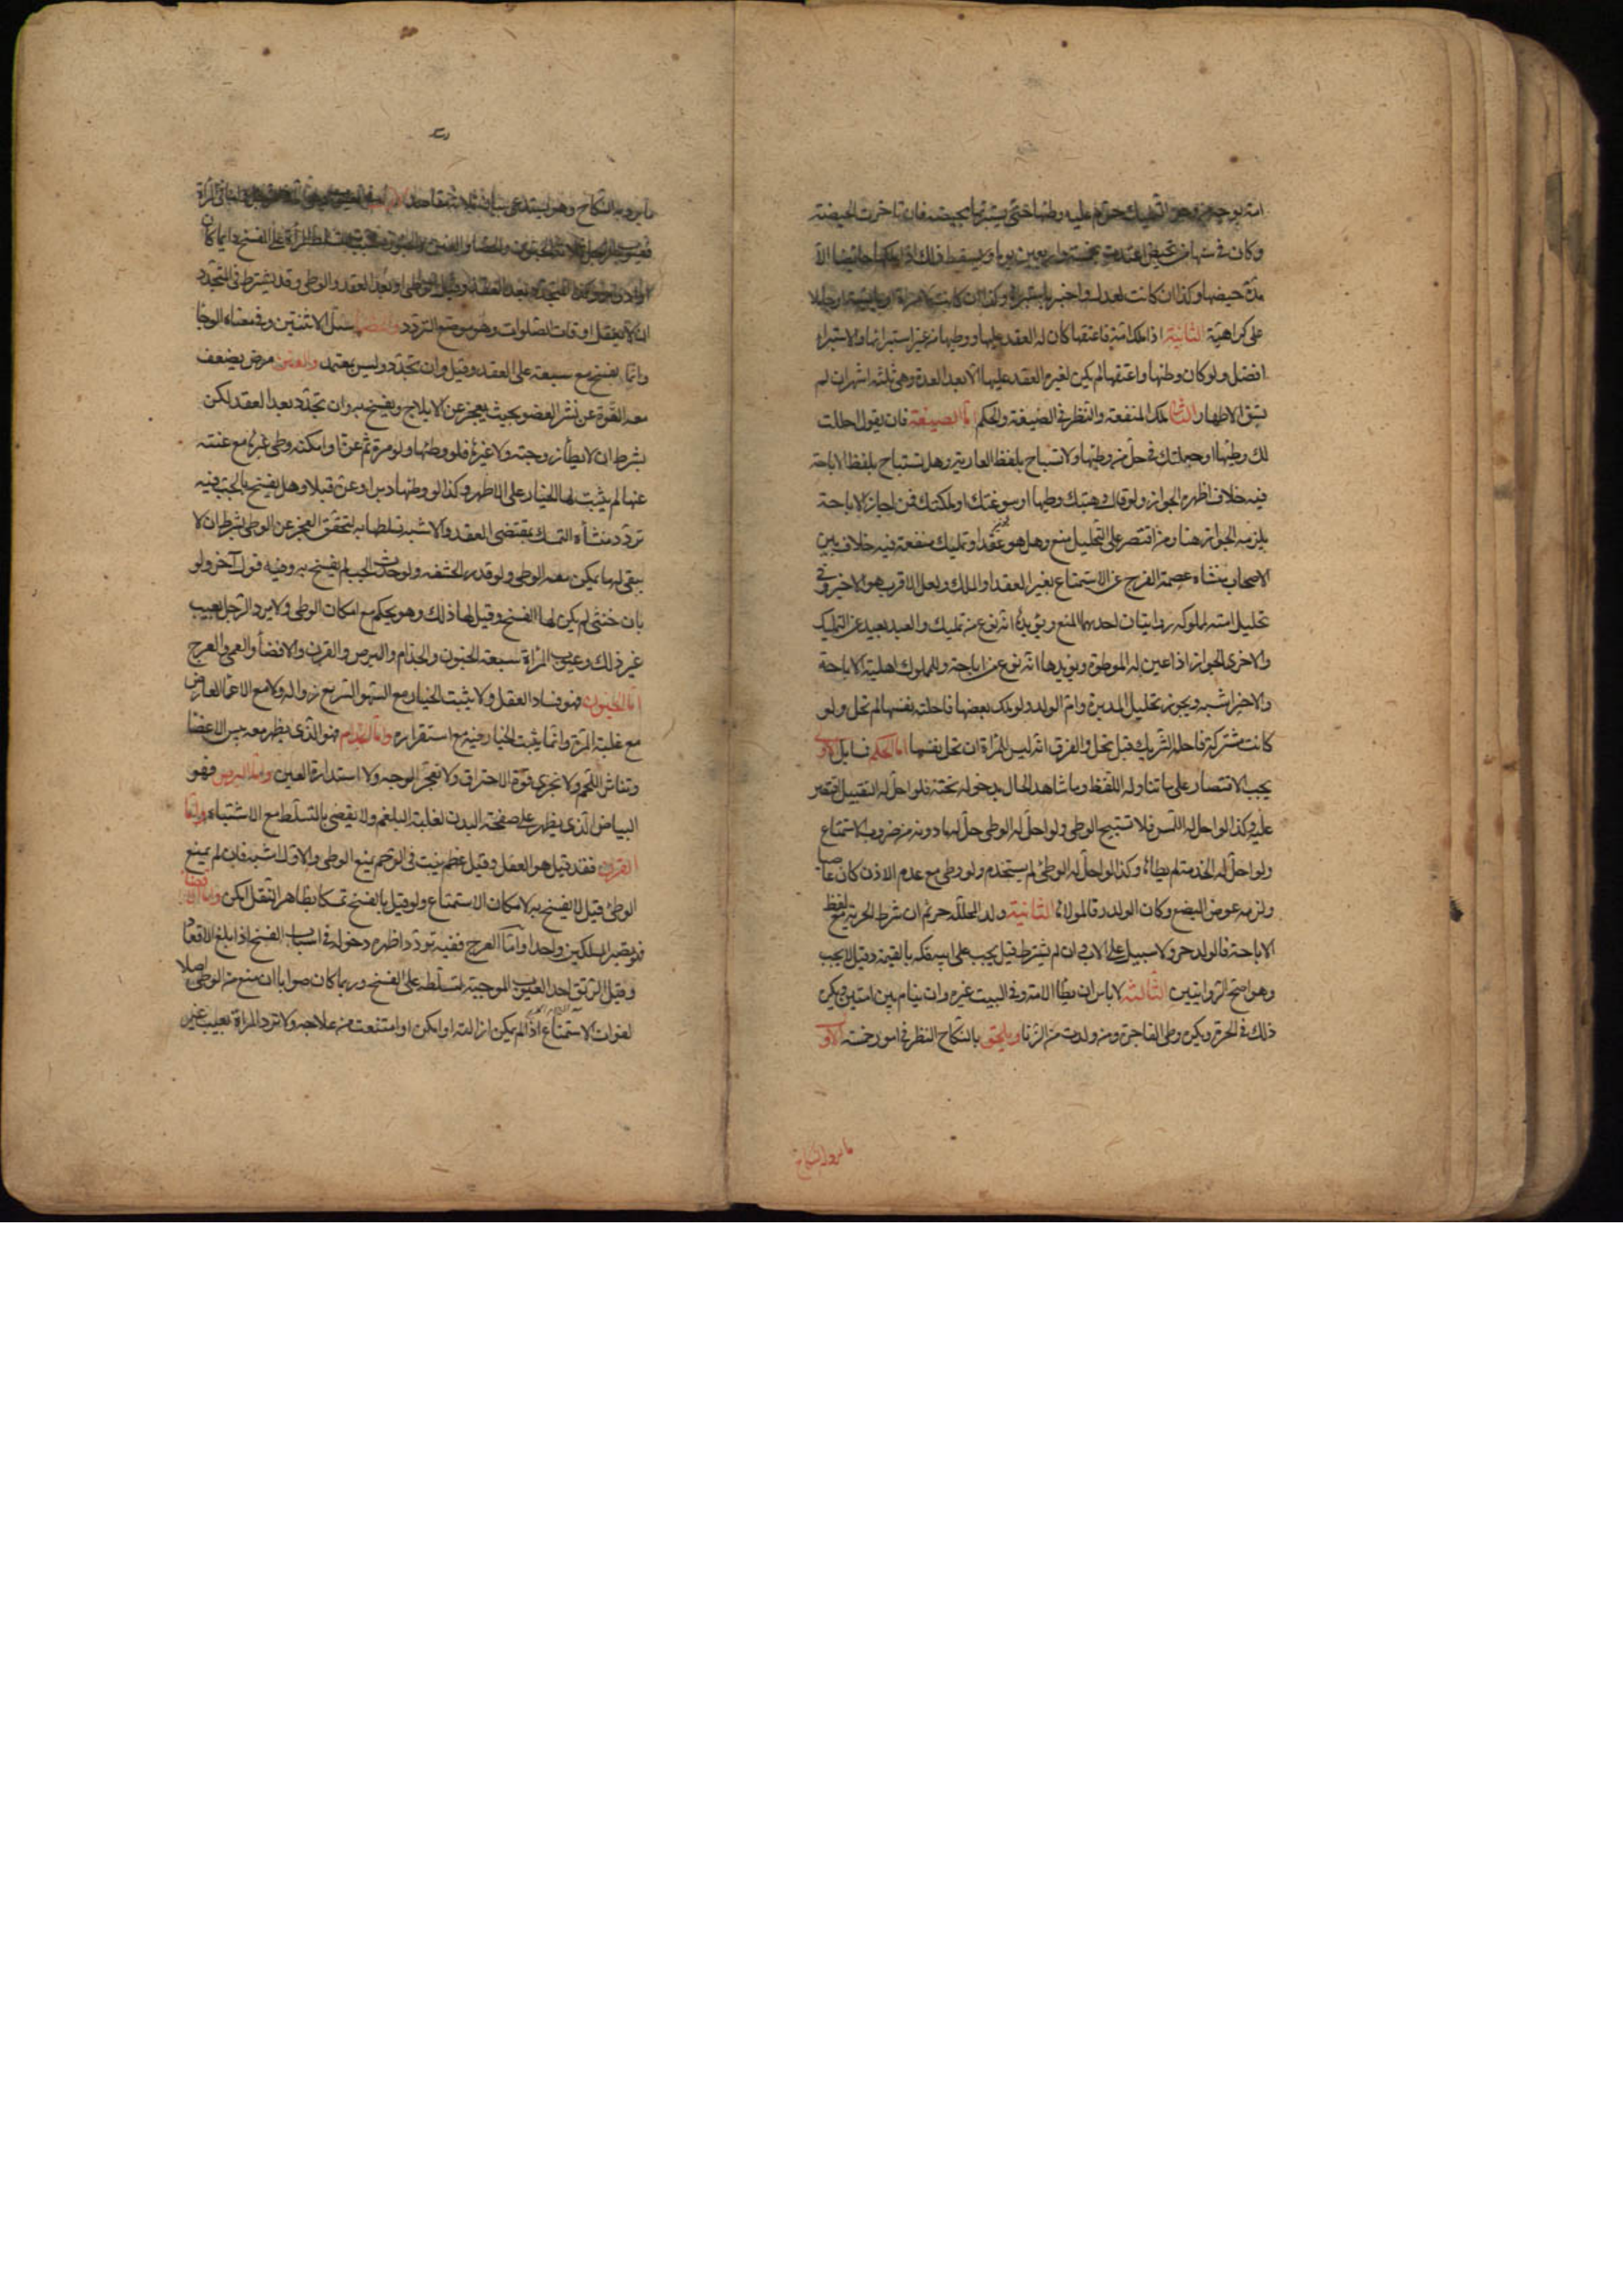 امة بوجه من وجوه التمليك حرم عليه وطئها حتى يستبرئها بحيضة فان تاخرت الحيضة
وكان في سنها من تحيض اعتدت بخمسة واربعين يوما ويسقط ذلك اذا ملكها حائضا الا
مدة حيضها وكذا ان كانت لعدل واخبر باستبرائها وكذا ان كانت لامراة او يائسة او حاملا
على كراهية الثانية اذا ملك امة فاعتقها كان له العقد عليها ووطيها من غير استبرائها والاستبراء
افضل ولو كان وطئها واعتقها لم يكن لغيره العقد عليها الا بعد العدة وهي ثلثة اشهر ان لم
يسبق الاطهار الثاني ملك المنفعة والنظر في الصيغة والحكم اما الصيغة فان يقول احللت
لك وطيها او جعلتك في حل من وطيها ولا تستباح بلفظ العارية وهل تستباح بلفظ الاباحة
فيه خلاف اظهره الجواز ولو قال وهبتك وطيها او سوغتك او ملكتك فمن اجاز الاباحة
يلزمه الجواز هنا ومن اقتصر على التحليل منع وهل هو عقد او تمليك منفعة فيه خلاف بين
الاصحاب منشاه عصمة الفرج عن الاستمتاع بغير العقد او الملك ولعل الاقرب هو الاخير وفي
تحليل امته لمملوكه روايتان احديهما المنع ويؤيدها انه نوع من تمليك والعبد بعيد عن التمليك
والاخرى الجواز اذا عين له الموطوة ويؤيدها انه نوع من اباحة وللمملوك اهلية الاباحة
والاخير اشبه ويجوز تحليل المدبرة وام الولد ولو ملك بعضها فاحلته نفسها لم تحل ولو
كانت مشتركة فاحلها الشريك قيل تحل والفرق انه ليس للمراة ان تحل نفسها اما الحكم فمسايل الاولى
يجب الاقتصار على ما تناوله اللفظ وما شاهد الحال بدخوله تحته فلو احل له التقبيل اقتصر
عليه وكذا لو احل له اللمس فلا تستبيح الوطي ولو احل له الوطي حل له ما دونه من ضروب الاستمتاع
ولو احل له الخدمة لم يطاها وكذا لو احل له الوطئ لم يستخدم ولو وطي مع عدم الاذن كان عاصيا
ولزمه عوض البضع وكان الولد رقا لمولاها الثانية ولد المحللة حر ثم ان شرط الحرية مع لفظ
الاباحة فالولد حر ولا سبيل على الاب وان لم يشترط قيل يجب على ابيه فكه بالقيمة وقيل لا يجب
وهو اصح الروايتين الثالثة لا باس ان يطا الامة وفي البيت غيره وان ينام بين امتين ويكره
ذلك في الحرة ويكره وطي الفاجرة ومن ولدت من الزنا ويلحق بالنكاح النظر في امور خمسة الاول
ما يرد به النكاح
ما يرد به النكاح وهو يستدعي بيان ثلاثة مقاصد الاول في العيوب وهي اما في الرجل واما في المراة
فعيوب الرجل ثلاثة الجنون والخصاء والعنن فالجنون سبب لتسلط المراة على الفسخ دايما كان
او ادوارا وكذا المتجدد بعد العقد وقبل الوطي او بعد العقد والوطي وقد يشترط في المتجدد
ان لا يعقل اوقات الصلوات وهو موضع التردد والخصاء سل الانثيين وفي معناه الوجا
وانما يفسخ مع سبقه على العقد وقيل وان تجدد وليس بمعتمد والعنن مرض يضعف
معه القوة عن نشر العضو بحيث يعجز عن الايلاج ويفسخ به وان تجدد بعد العقد لكن
بشرط ان لا يطأ زوجته ولا غيرها فلو وطئها ولو مرة ثم عن او امكنه وطي غيرها مع عننه
عنها لم يثبت لها الخيار على الاظهر وكذا لو وطئها دبرا وعن قبلا وهل يفسخ بالجب فيه
تردد منشأه التمسك بمقتضى العقد والاشبه تسلطها به لتحقق العجز عن الوطئ بشرط ان لا
يبقى له ما يمكن معه الوطي ولو قدر الحشفة ولو حدث الجب لم يفسخ به وفيه قول آخر ولو
بان خنثى لم يكن لها الفسخ وقيل لها ذلك وهو تحكم مع امكان الوطي ولا يرد الرجل بعيب
غير ذلك وعيوب المراة سبعة الجنون والجذام والبرص والقرن والافضأ والعمى والعرج
اما الجنون فهو فساد العقل ولا يثبت الخيار مع السهو السريع زواله ولا مع الاغما العارض
مع غلبة المرة وانما يثبت الخيار فيه مع استقراره واما الجذام فهو الذي يظهر معه يبس الاعضا
وتناثر اللحم ولا تجزي قوة الاحتراق ولا تعجر الوجه ولا استدارة العين واما البرص فهو
البياض الذي يظهر على صفحة البدن لغلبة البلغم ولا يقضى بالتسلط مع الاشتباه واما
القرن فقد قيل هو العفل وقيل عظم ينبت في الرحم يمنع الوطي والاول اشبه فان لم يمنع
الوطئ قيل لا يفسخ به لامكان الاستمتاع ولو قيل بالفسخ تمسكا بظاهر النقل امكن واما الافضا
فهو تصير المسلكين واحدا واما العرج ففيه تردد اظهره دخوله في اسباب الفسخ اذا بلغ الاقعاد
وقيل الرتق احد العيوب الموجبة لتسلطه على الفسخ وربما كان صوابا ان منع من الوطي اصلا
لفوات الاستمتاع اذا لم يمكن ازالته او امكن او امتنعت من علاجه ولا ترد المراة بعيب غير